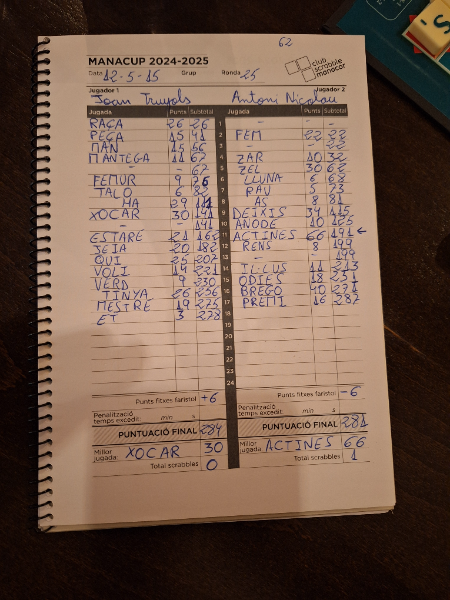 62
MANACUP 2024-2025
club scrabble manacor
Data 12-5-15 Grup Ronda 25
Jugador 1 Jugador 2
Joan Truyols Antoni Nicolau
Jugada Punts Subtotal Jugada Punts Subtotal
RAGA 26 26 1 - -
PEGA 15 41 2 FEM 22 22
MAN 15 56 3 - 22
MANTEGA 11 67 4 ZAR 10 32
- 67 5 ZEL 30 62
FEMUR 9 76 6 LLUNA 6 68
TALO 6 82 7 PAU 5 73
HA 29 111 8 AS 8 81
XOCAR 30 141 9 DEIXIS 34 115
- 141 10 ANODE 10 125
ESTARÉ 21 162 11 ACTINES 66 191 ←
20 182 12 RENS 8 199
QUI 25 207 13 - 199
VOLI 14 221 14 14 213
VERD 9 230 15 ODIES 18 231
TINYA 26 256 16 BREGO 40 271
MESTRE 19 275 17 PREMI 16 287
ET 3 278 18
19
20
21
22
23
24
Punts fitxes faristol +6 Punts fitxes faristol -6
Penalització temps excedit: min s Penalització temps excedit: min s
PUNTUACIÓ FINAL 284 PUNTUACIÓ FINAL 281
Millor jugada: XOCAR 30 Millor jugada: ACTINES 66
Total scrabbles 0 Total scrabbles 1